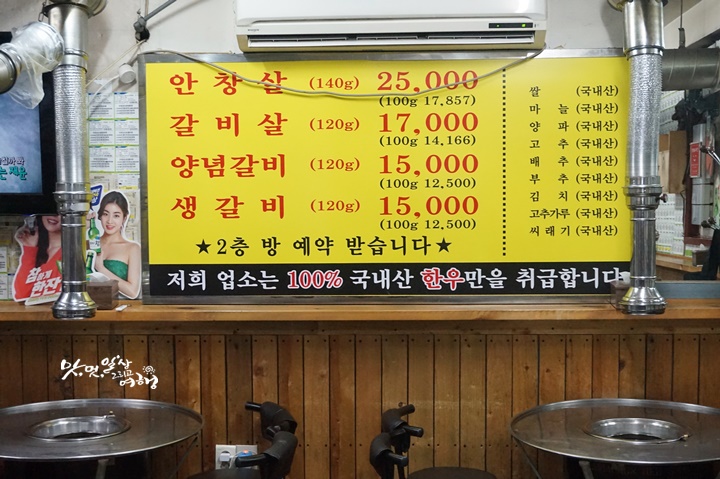 안창살 (140g) 25,000
(100g 17,857)
갈비살 (120g) 17,000
(100g 14.166)
양념갈비 (120g) 15,000
(100g 12,500)
생갈비 (120g) 15,000
(100g 12,500)
★2층 방 예약 받습니다★
쌀 (국내산)
마늘 (국내산)
양파 (국내산)
고추 (국내산)
배추 (국내산)
부추 (국내산)
김치 (국내산)
고추가루 (국내산)
씨래기 (국내산)
저희 업소는 100% 국내산 한우만을 취급합니다
맛,멋,일상
그리고
여행